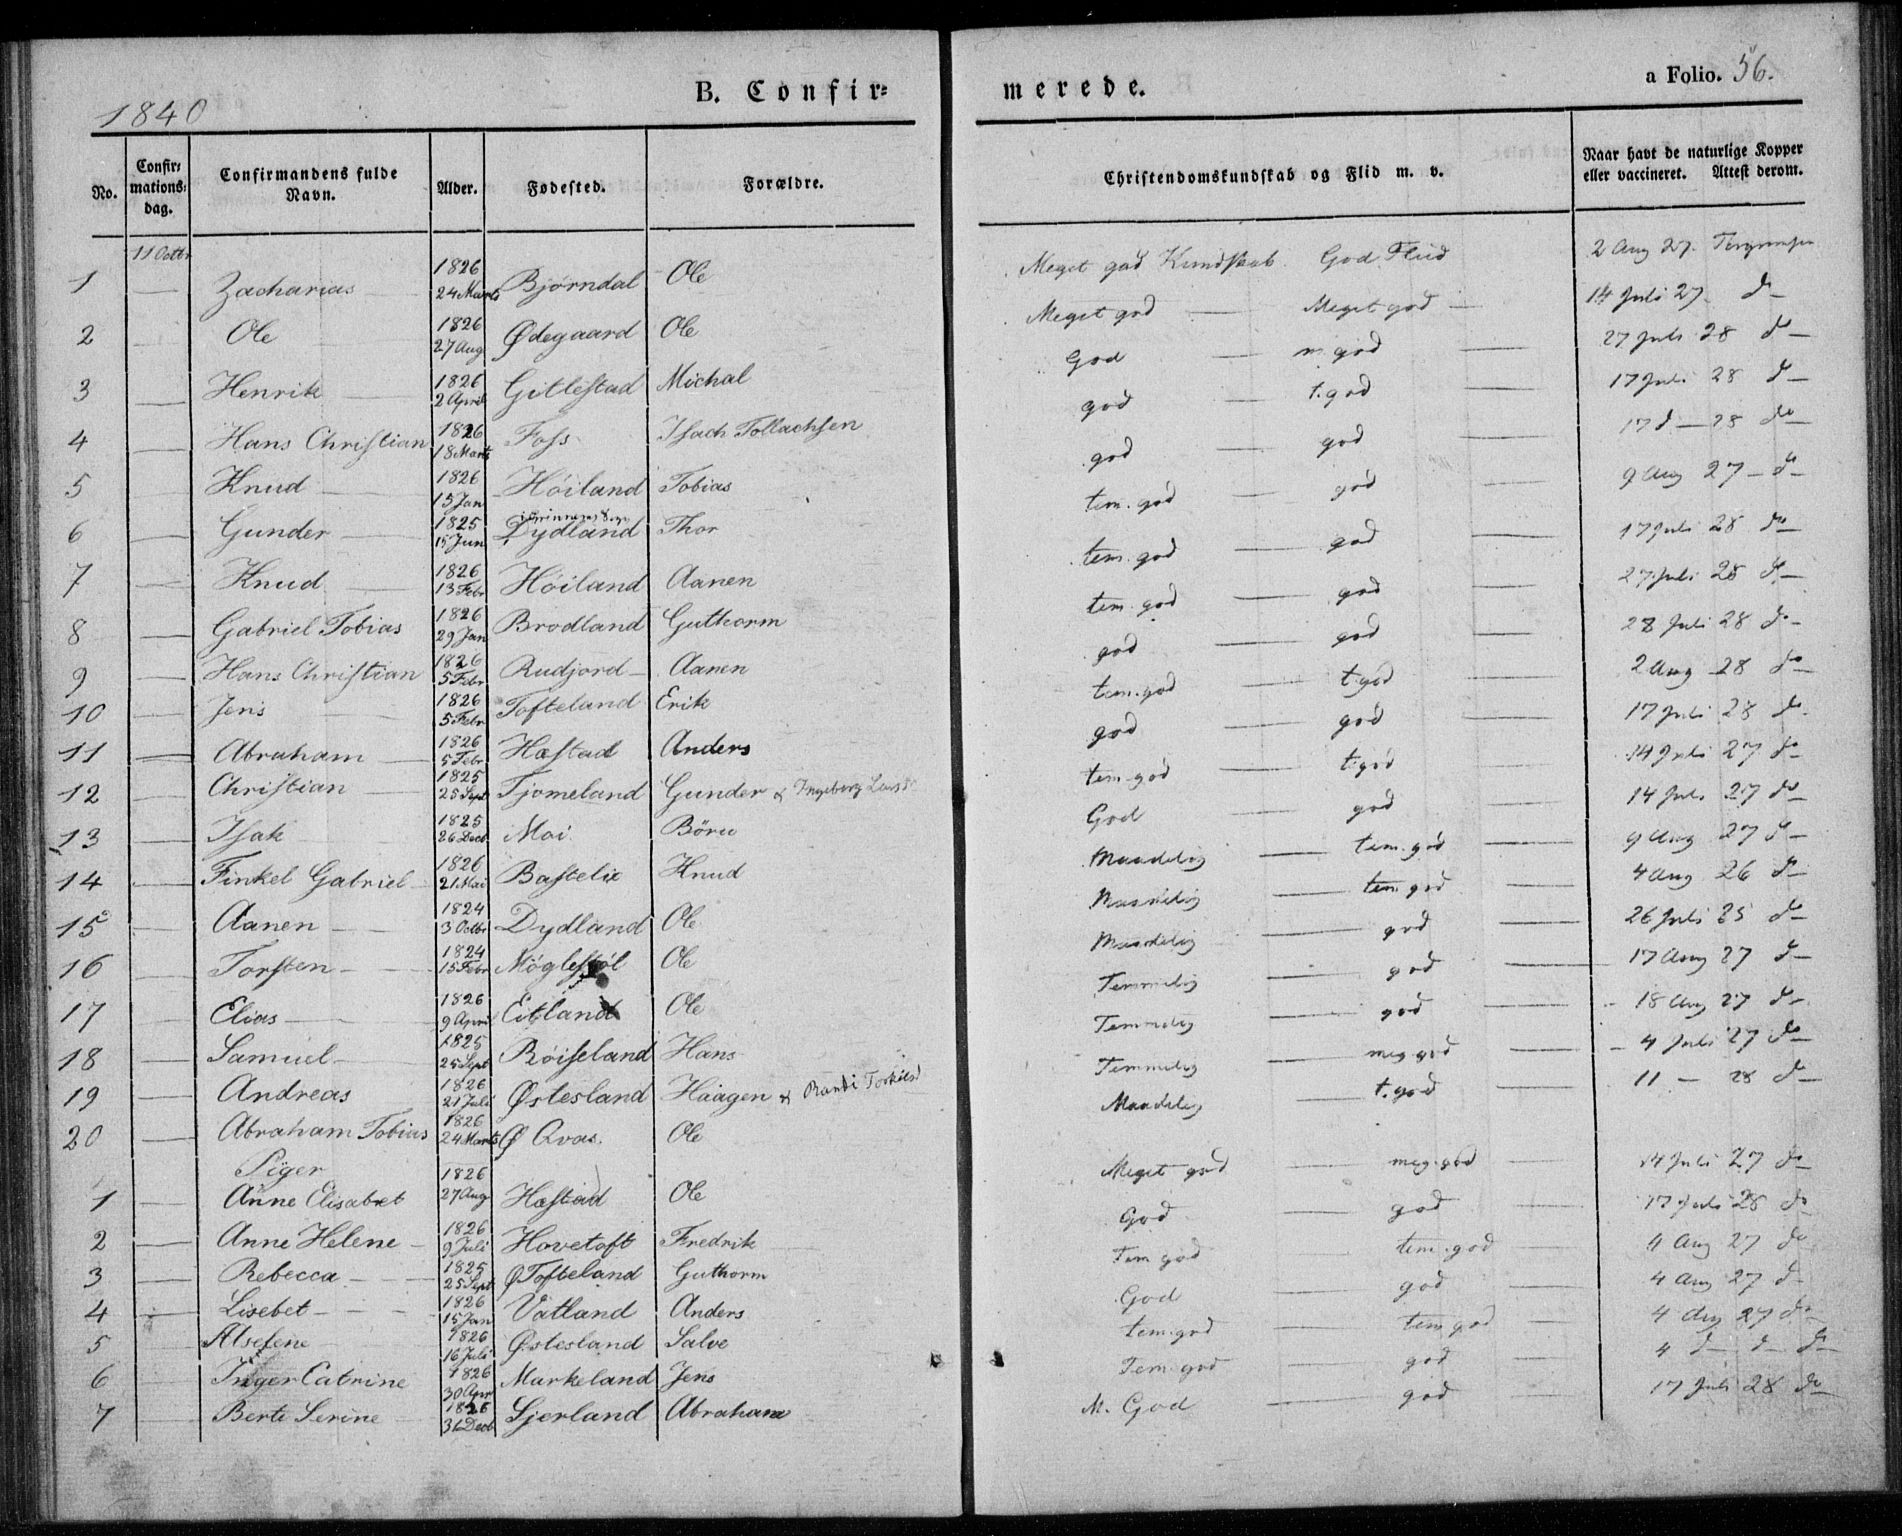 B. Confir=
merede.
a Folio. 56.
1840
No. Confir= mations= dag. Confirmandens fulde Navn. Alder. Fødested. Forældre. Christendomskundskab og Flid m. v. Naar havt de naturlige Kopper eller vaccineret. Attest derom.
11 Octbr
1 Zacharias 1826 24 Marts Bjørndal Ole Meget god Kundskab God Fliid 2 Aug 27.
2 Ole 1826 27 Aug Ødegaard Ole Meget god Meget god 14 Juli 27 do
3 Henrik 1826 2 April Gitlestad Michal God m. god 27 Juli 28 do
4 Hans Christian 1826 18 Marts Foss Isach Tollachsen god t. god 17 Juli 28 do
5 Knud 1826 15 Jan Høiland Tobias god god 17 d 28 do
6 Gunder 1825 15 Jun Dydland Thor tem. god god 9 Aug 27 do
7 Knud 1826 13 Febr Høiland Aanen tem. god god 17 Juli 28 do
8 Gabriel Tobias 1826 29 Jan Brodland Guthorm tem. god god 27 Juli 28 do
9 Hans Christian 1826 5 Febr Rudjord Aanen god god 28 Juli 28 do
10 Jens 1826 5 Febr Tofteland Erik tem. god t. god 2 Aug 28 do
11 Abraham 1826 5 Febr Hæstad Anders god god 17 Juli 28 do
12 Christian 1825 25 Sept Tjomeland Gunder & Ingeborg tem. god t. god 14 Juli 27 do
13 Isak 1825 26 Decb Moi Böru God god 14 Juli 27 do
14 Finkel Gabriel 1826 21 Mai Bastelie Knud Maadelig tem. god 9 Aug 27 do
15 Aanen 1824 3 Octbr Dydland Ole Maadelig tem. god 4 Aug 26 do
16 Torsten 1824 15 Febr Møglestøl Ole Maadelig god 26 Juli 25 do
17 Elias 1826 9 April Eitland Ole Temmelig god 17 Aug 27 do
18 Samuel 1825 25 Sept Røiseland Hans Temmelig god 18 Aug 27 do
19 Andreas 1826 21 Juli Østesland Haagen & Randi Torkilsd Temmelig meg. god 4 Juli 27 do
20 Abraham Tobias 1826 24 Marts Ø Qvas. Ole Maadelig t. god 11 28 do
Piger
1 Anne Elisabet 1826 27 Aug Hæstad Ole Meget god meg. god 14 Juli 27 do
2 Anne Helene 1826 9 Juli Hovetoft Fredrik God god 17 Juli 28 do
3 Rebecca 1825 25 Sept Ø Tofteland Guthorm Tem god tem. god 4 Aug 27 do
4 Lisebet 1826 15 Jan Vatland Anders God god 4 Aug 27 do
5 Alsefene 1826 16 Juli Østesland Salve tem. god tem god 4 Aug 27 do
6 Inger Catrine 1826 30 Apr Markeland Jens Tem. god god 4 d d do
7 Berte Serine 1826 31 Decb Sjerland Abraham M. God god 17 Juli 28 do